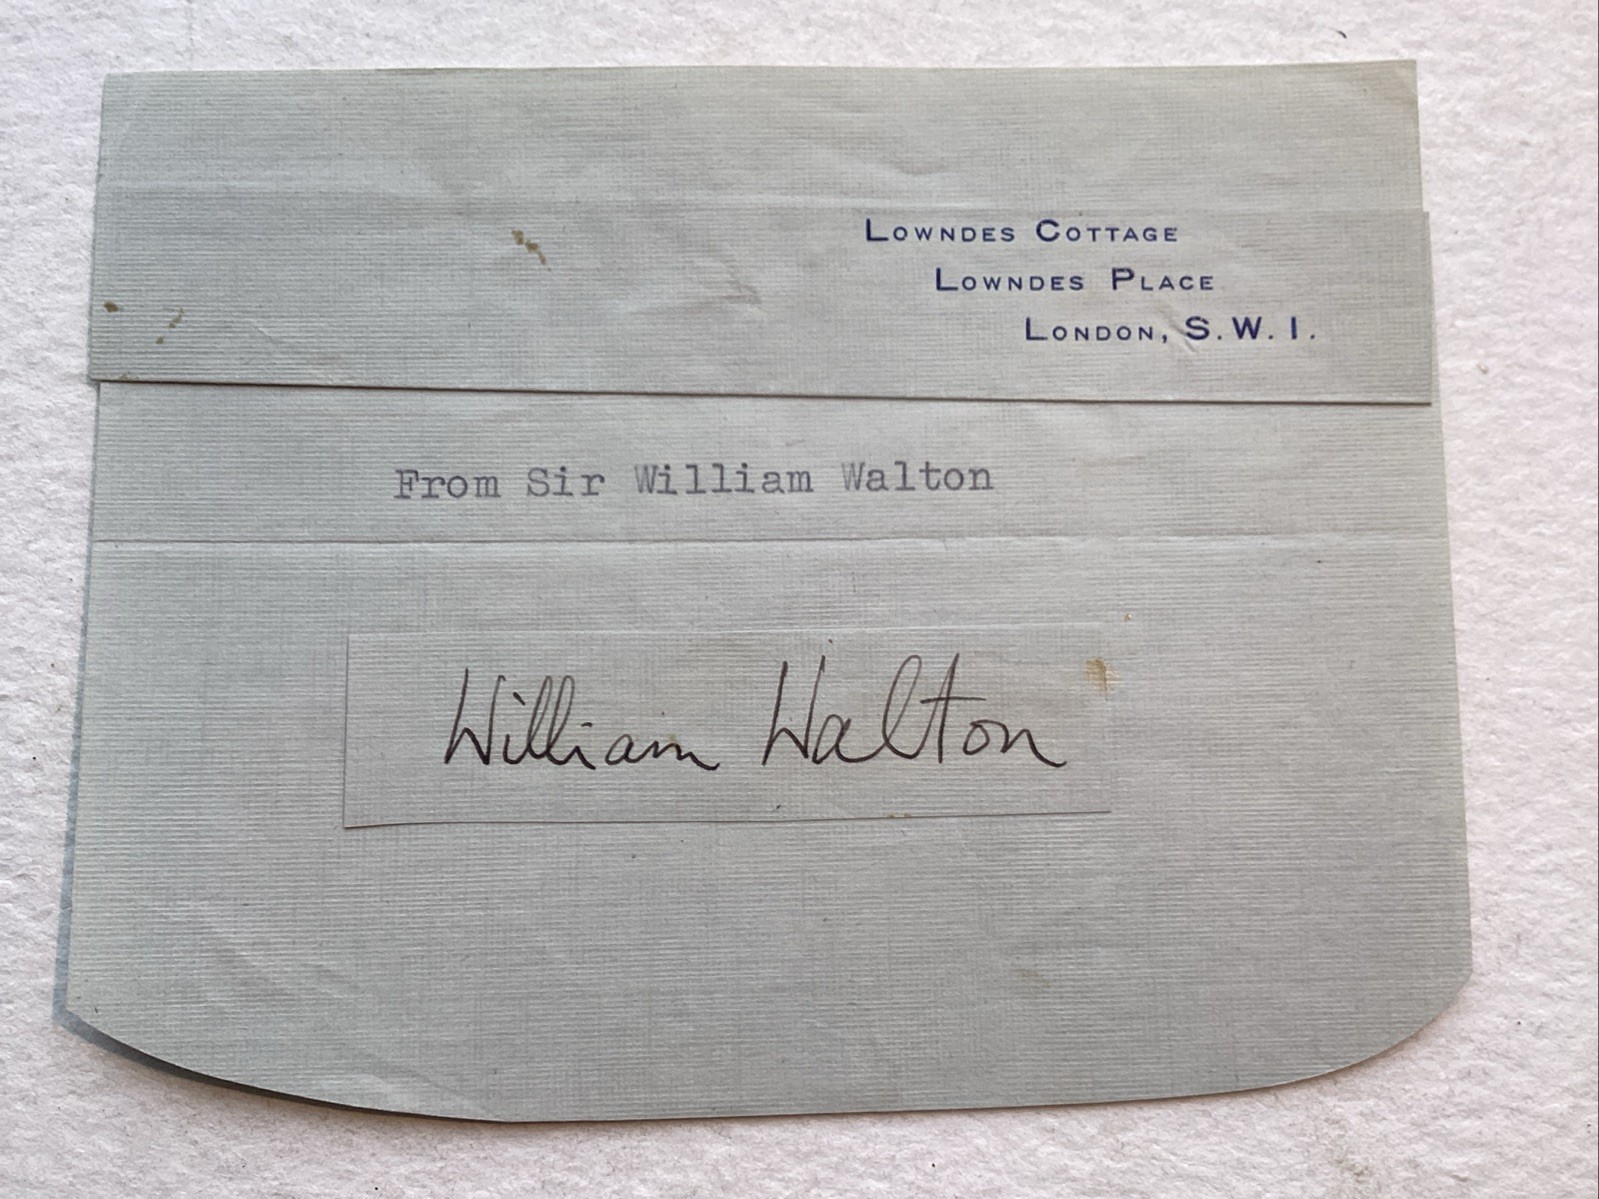 Lowndes Cottage
Lowndes Place
London, S.W.1.
From Sir William Walton
William Walton